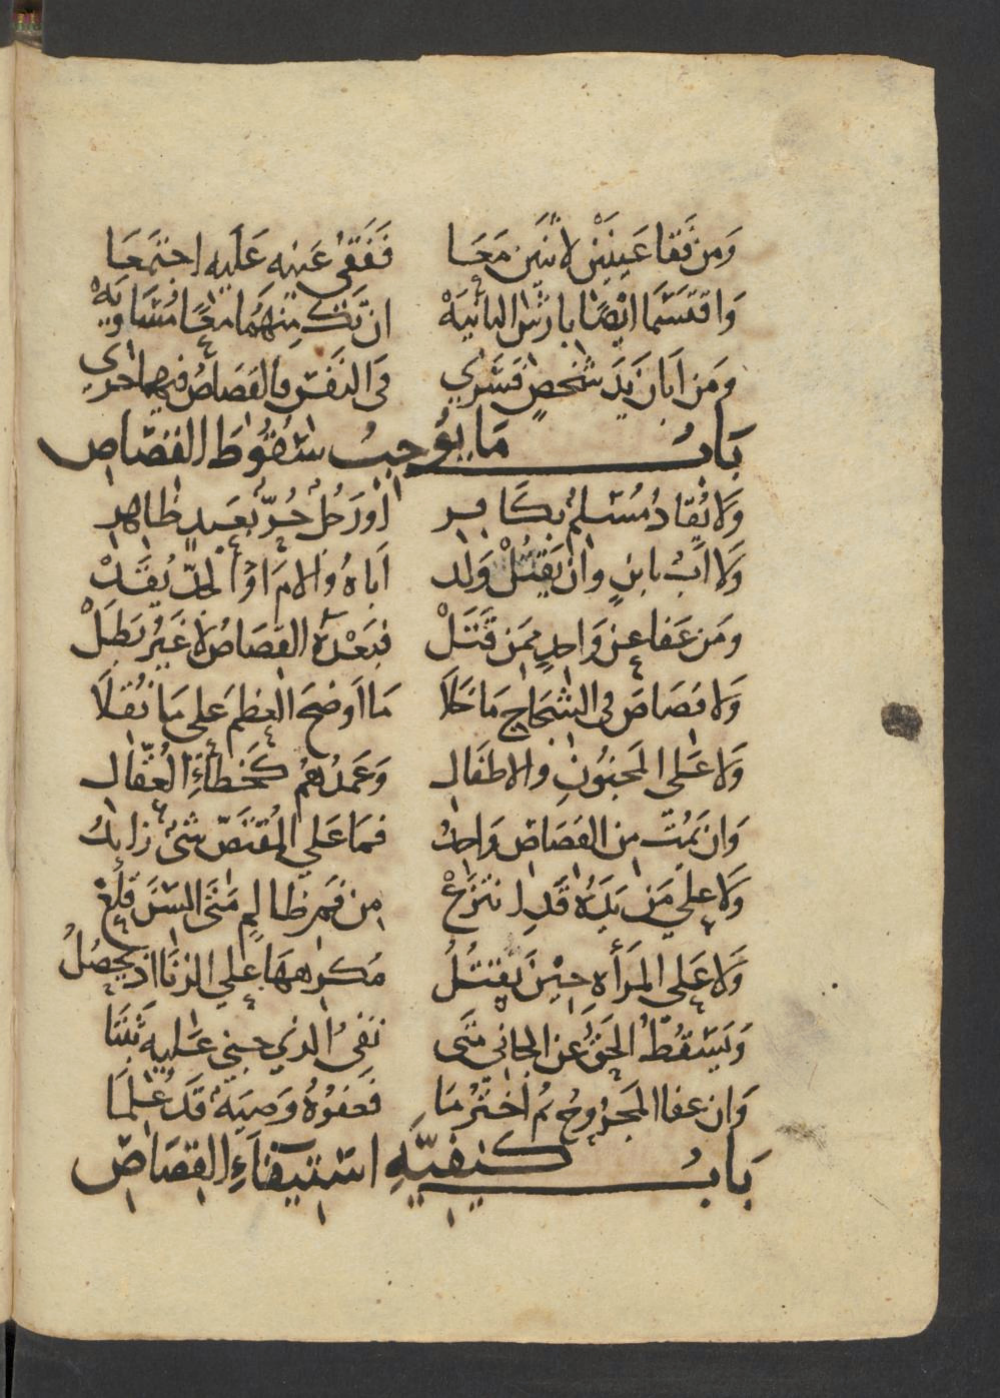 وَمَن فَقَا عَينَيْنِ لاثنَين مَعَا فَفَقْىُ عَينِه عَلَيهِ اجتَمَعَا
وَاقتَسَمَا ايْضًا بارْش الباقيَهْ ان تَكُ مِنهُمَا معًا مُسَاوِيَهْ
ومَن اَبَان يَدَ شَخصٍ فسَري في النفَس فالقصَاصُ فيهما حري
بَابُ مَا يوُجِبُ سُقُوُطَ القصَاص
وَلا يُقَادُ مُسْلِمُ بكَافِر أو رَجُل حُرّ بعَبدٍ ظاهِر
وَلا اَبُ بابنٍ وان يَقتُلْ وَلد اَباهُ والام اَو الجدّ يُقَدْ
ومَن عَفا عن وَاحدٍ ممَن قَتَلْ فبَعْدهُ القصَاصُ لا غَيرُ بَطَلْ
وَلا قصَاصَ في الشجَاج مَا خَلاَ مَا اَوضحَ العظمَ علي مَا نُقلاَ
وَلا عَلى المَجنوُنِ والاطفَال وَعَمدُهمُ كخَطأءِ العُقّال
وَان يَمُتْ من القصَاص وَاحدُ فمَا عَلي المُقتَصّ شئُ زايدُ
وَلا علي مَن يَدَهُ قَدِ انتزَعْ من فَم ظالمٍ مَتَى السّنَ قلَعْ
وَلا عَلى المَرأه حيْنَ يَقتُلُ مُكرهِهَا علي الزنَا اذ يحصُلُ
وَيَسْقُطُ الحَقُ عن الجاني مَتى نفى الذي جني عَليهِ ثبَتَا
وَان عفا المَجرُوحُ ثم اختُرمَا فعَفوُهُ وَصيَة قَد عُلمَا
بَابُ كيفيّهِ استيفَاءِ القصَاص